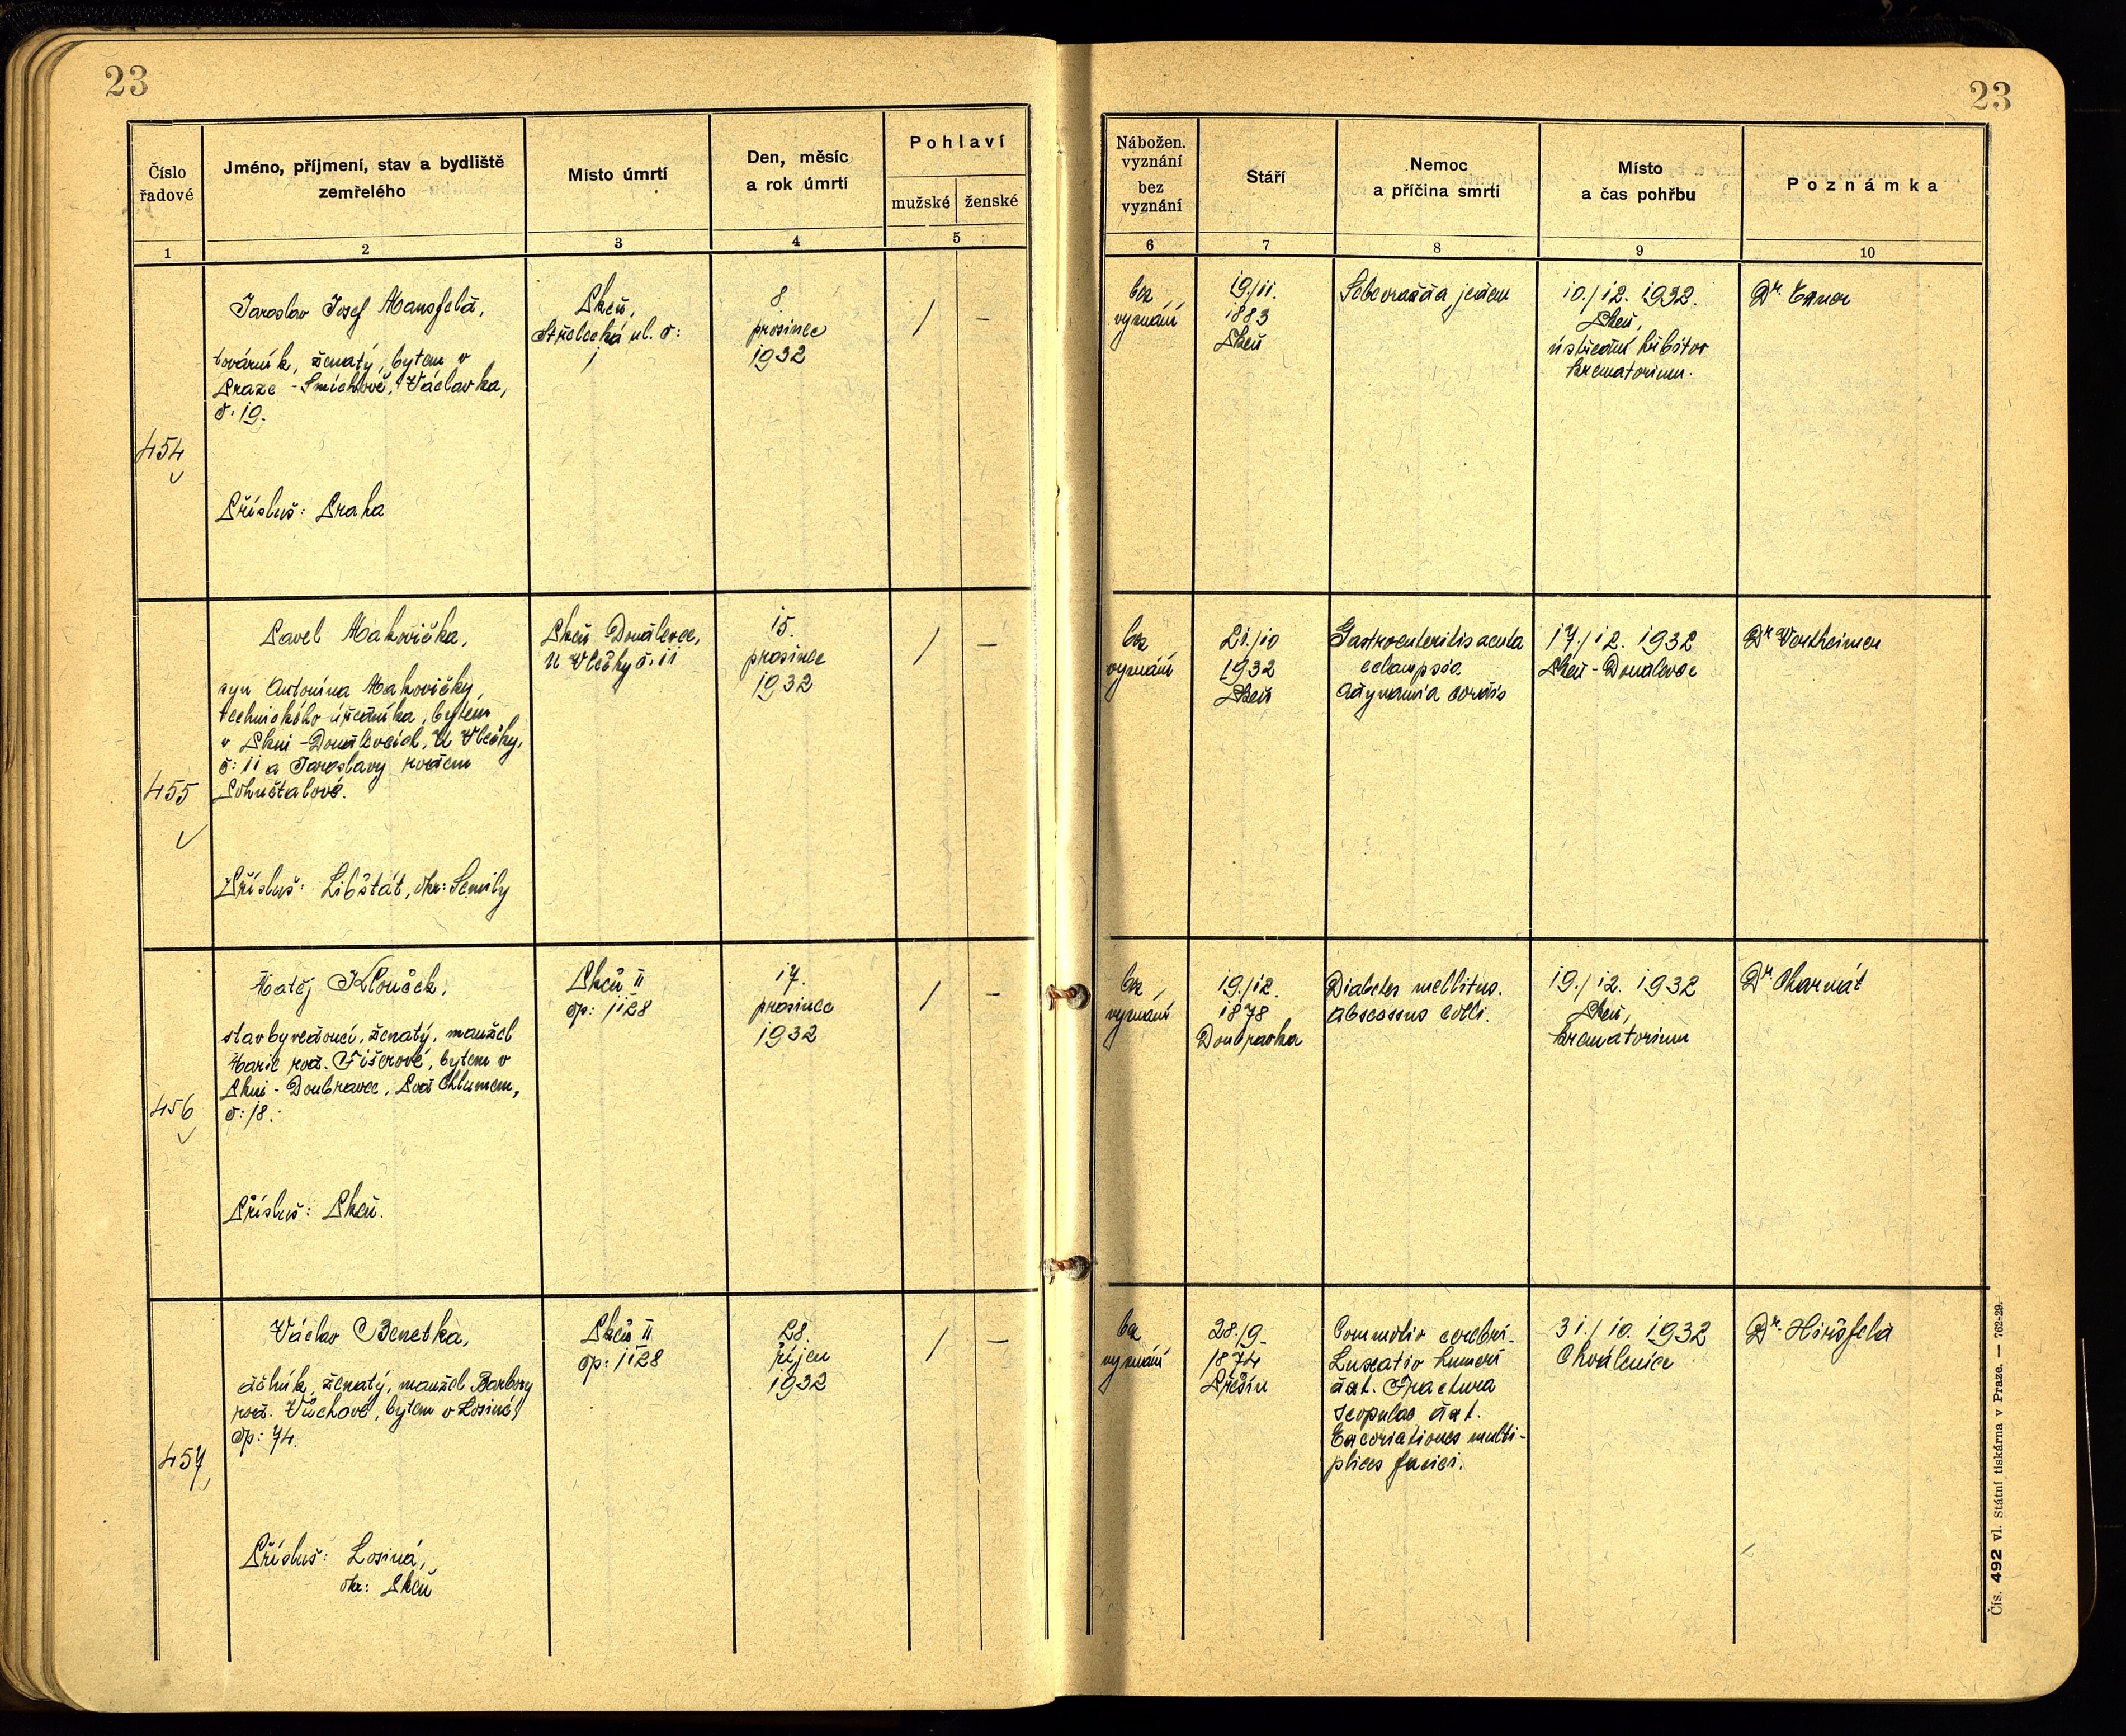 23
Číslo
řadové
Jméno, příjmení, stav a bydliště
zemřelého
Místo úmrtí
Den, měsíc
a rok úmrtí
Pohlaví
mužské ženské
1 2 3 4 5
454
Jaroslav Josef Mansfeld,
továrník, ženatý, bytem v
Praze - Smíchově, Václavka,
č: 19.
Přísluš: Praha
Plzeň,
Střelecká ul. č:
1
8
prosince
1932
/ —
455
Pavel Makovička,
syn Antonína Makovičky,
technického úředníka, bytem
v Plzni - Doudlevcích, U Vlečky,
č: 11 a Jaroslavy rozené
Přísluš: Libštát, okr: Semily
Plzeň Doudlevce,
U Vlečky č: 11
15.
prosince
1932
/ —
456
Matěj Klouček,
stavbyvedoucí, ženatý, manžel
Marie roz. Fišerové, bytem v
Plzni - Doubravce, Pod Chlumem,
č: 18.
Přísluš: Plzeň.
Plzeň II
čp: 1128
17.
prosince
1932
/ —
457
Václav Benetka,
dělník, ženatý, manžel Barbory
roz. Víchové, bytem v Losiné,
čp: 74.
Přísluš: Losiná,
okr: Plzeň
Plzeň II
čp: 1128
28.
říjen
1932
/ —
23
Nábožen.
vyznání
bez
vyznání
Stáří
Nemoc
a příčina smrti
Místo
a čas pohřbu
Poznámka
6 7 8 9 10
bez
vyznání
19./11.
1883
Plzeň
Sebevražda jedem
10./12. 1932.
Plzeň,
ústřední hřbitov
krematorium.
Dr.
bez
vyznání
21./10
1932
Plzeň
Gastroenteritis acuta
eclampsia.
Adynamia cordis
17./12. 1932
Plzeň - Doudlevce
Dr Wertheimer
bez
vyznání
19./12.
1878
Doubravka
Diabetes mellitus.
Abscessus colli.
19./12. 1932
Plzeň,
krematorium
Dr Charvát
bez
vyznání
28./9.
1874
Přešín
Commotio cerebri.
Luxatio humeri
dxt. Fractura
scapulae dxt.
Excoriationes multi-
plices faciei.
31./10. 1932
Chválenice
Dr. Hiršfeld
Čís. 492 vl. Státní tiskárna v Praze. — 762-29.